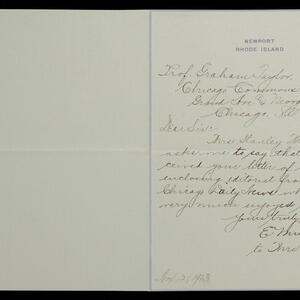 NEWPORT
RHODE ISLAND
Prof. Graham Taylor,
Chicago Commons
Grand Ave &
Chicago, Ill
Dear Sir:-
Mrs. Stanley
asks me to say that
ceived your letter of
enclosing editorial from
Chicago Daily News wh
very much enjoyed
Yours truly
E.
to Mrs